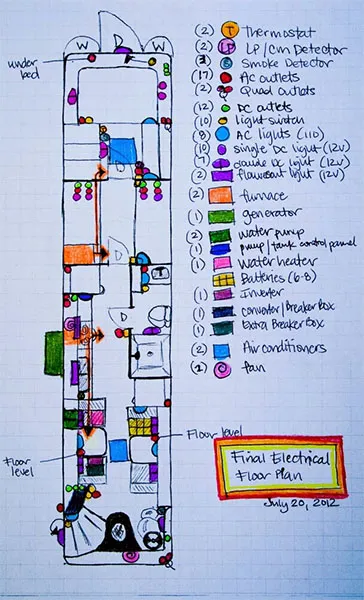 W D W
under bed
D
D
D
Floor level
Floor level
(2) T Thermostat
(2) LP LP/CM Detector
(3) S Smoke Detector
(17) AC outlets
(2) Quad outlets
(12) DC outlets
(10) light switch
(8) AC lights (110)
(10) single DC light (12V)
(7) double DC light (12V)
(2) flourescent light (12V)
(2) furnace
(1) generator
(2) water pump
(1) pump/tank control pannel
(1) Water heater
Batteries (6-8)
(1) Inverter
(1) converter/Breaker Box
(1) Extra Breaker Box
(2) Air conditioners
fan
Final Electrical
Floor Plan
July 20, 2012